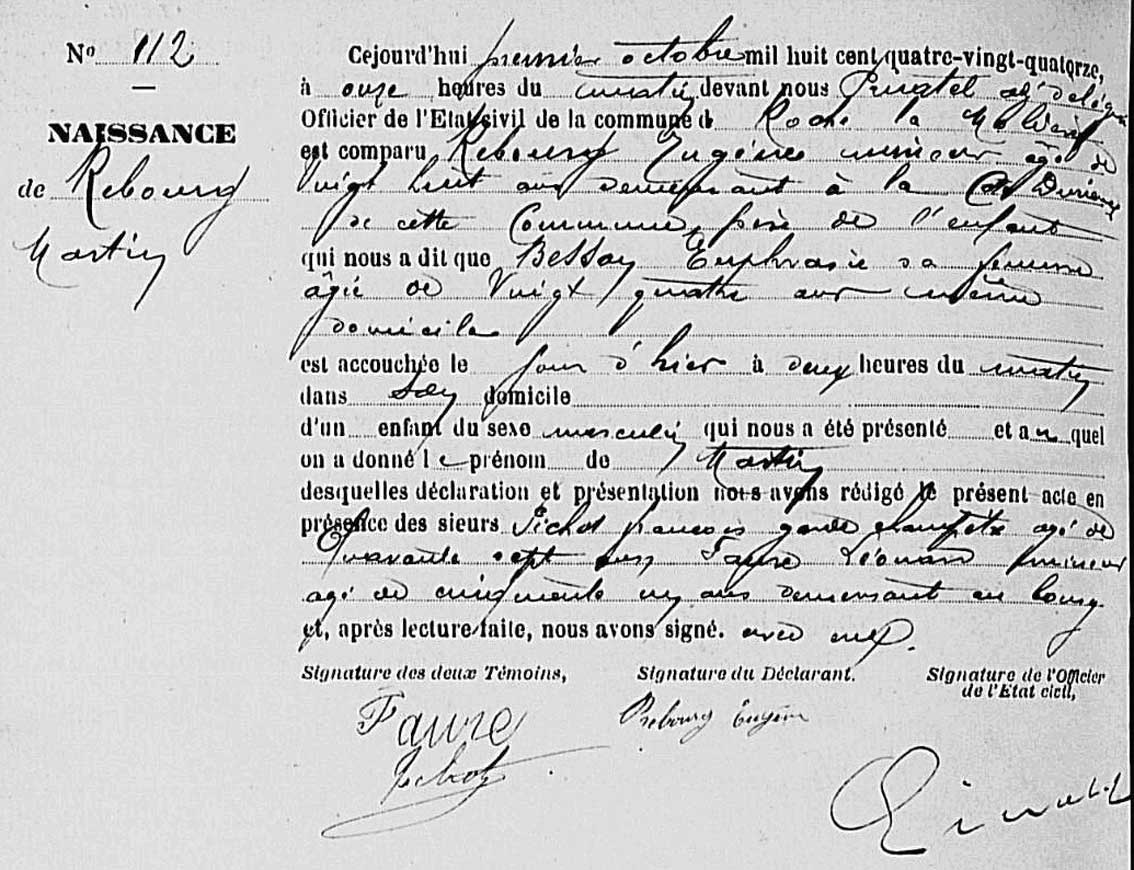 Nº 112
NAISSANCE
de Rebourg
Martin
Cejourd'hui premier octobre mil huit cent quatre-vingt-quatorze,
à onze heures du matin devant nous adj délégué
Officier de l'Etat civil de la commune de Roche la Molière
est comparu Rebourg Eugène mineur agé de
Vingt huit ans demeurant à la
de cette Commune, père de l'enfant
qui nous a dit que Bessay Euphrasie sa femme
âgée de Vingt quatre ans même
domicile
est accouchée le jour d'hier à deux heures du matin
dans son domicile
d'un enfant du sexe masculin qui nous a été présenté et auquel
on a donné le prénom de Martin
desquelles déclaration et présentation nous avons rédigé le présent acte en
présence des sieurs Pichot françois garde champêtre agé de
Quarante sept ans Faure Léonard mineur
agé de cinquante un ans demeurant au bourg
et, après lecture faite, nous avons signé. avec eux.
Signature des deux Témoins,
Signature du Déclarant.
Signature de l'Officier
de l'Etat civil,
Faure
Rebourg Eugène
Pichot